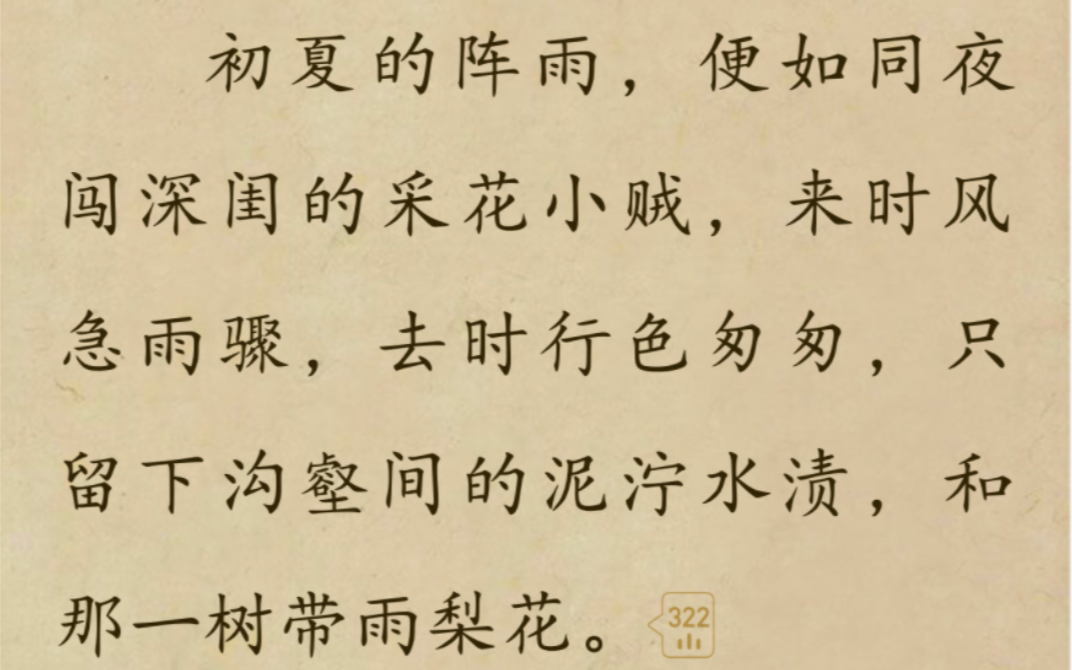 初夏的阵雨，便如同夜
闯深闺的采花小贼，来时风
急雨骤，去时行色匆匆，只
留下沟壑间的泥泞水渍，和
那一树带雨梨花。 322